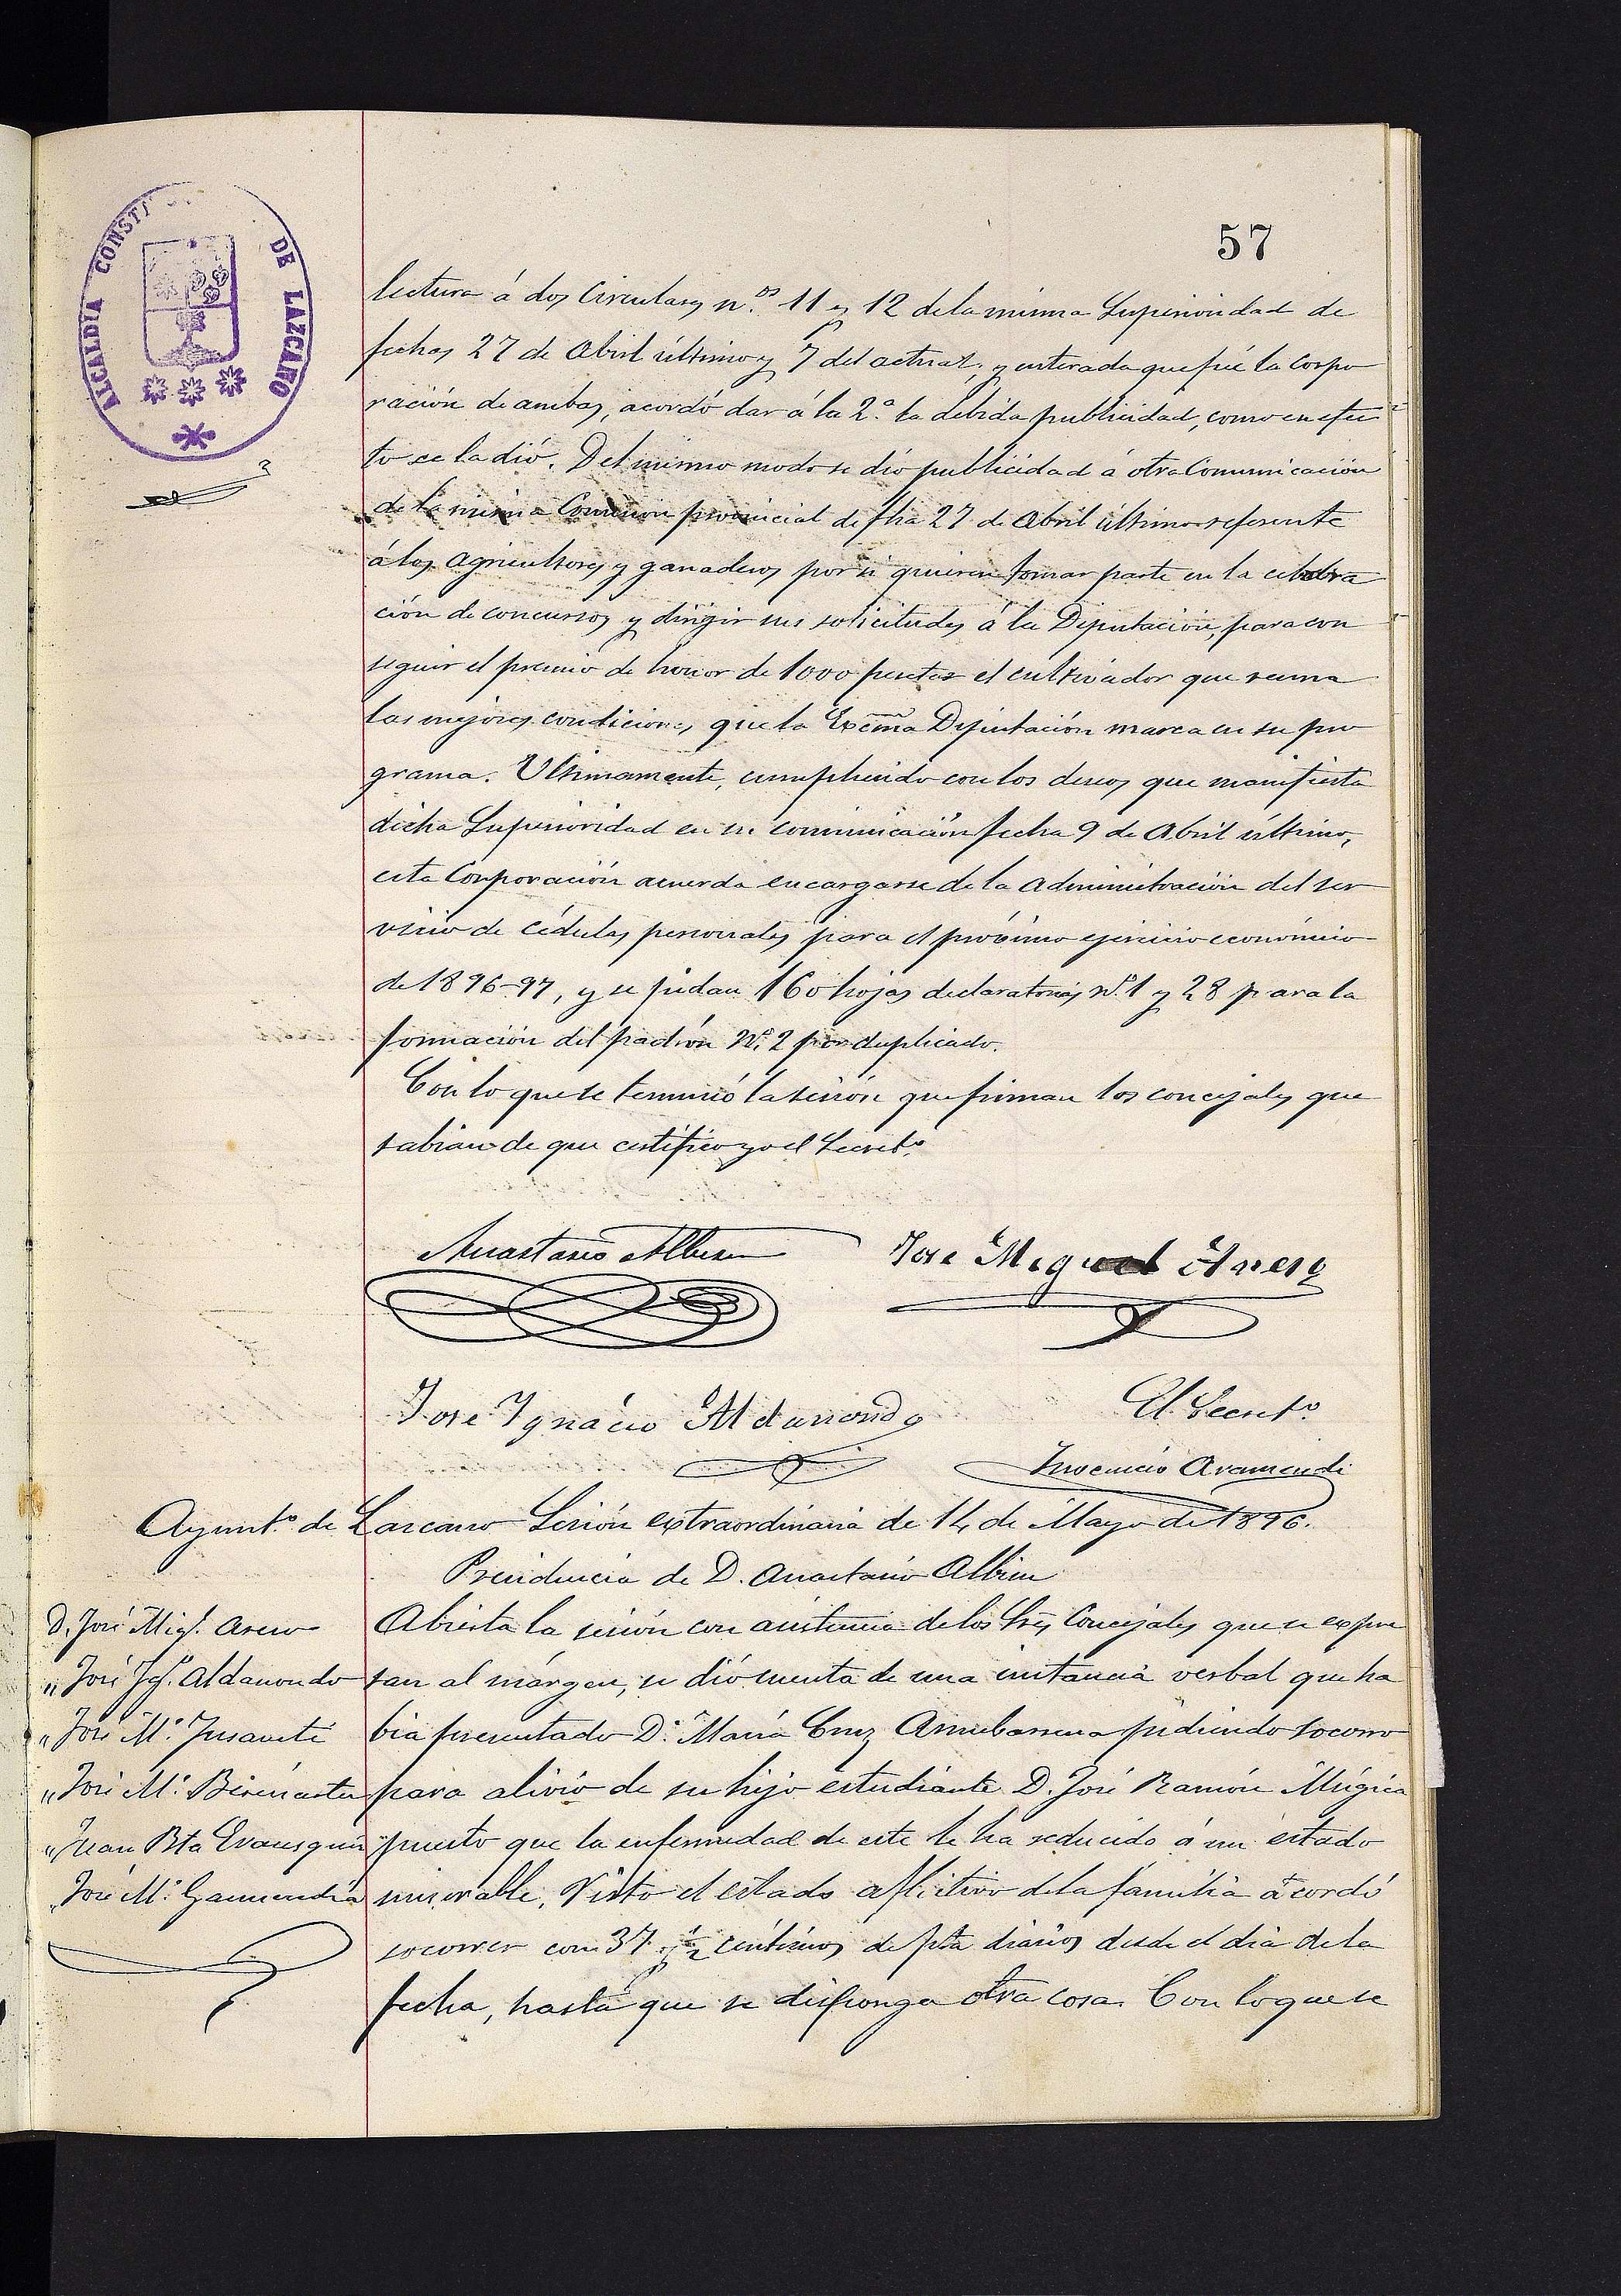 57
ALCALDIA CONSTI DE LAZCANO
lectura á dos Circulares n.os 11 y 12 de la misma Superioridad de
fechas 27 de Abril último y 7 del actual; y enterada que fué la Corpo
ración de ambas, acordó dar á la 2.a la debida publicidad, como en efec
to se la dió. Del mismo modo se dió publicidad á otra Comunicación
de la misma Comision provincial de fha 27 de Abril último referente
á los agricultores y ganaderos por si quieren tomar parte en la celebra
ción de concursos y dirigir sus solicitudes á la Diputación, para con
seguir el premio de honor de 1000 pesetas el cultivador que reuna
las mejores condiciones que la Excma Diputación marca en su pro
grama. Ultimamente, cumpliendo con los deseos que manifiesta
dicha Superioridad en su comunicación fecha 9 de Abril último,
esta Corporación acuerda encargarse de la administración del ser
vicio de cédulas personales para el próximo ejercicio económico
de 1896-97, y se pidan 160 hojas declaratorias Nº 1 y 28 para la
formación del padrón Nº 2 por duplicado.
Con lo que se terminó la sesión que firman los concejales que
sabian de que certifico yo el Secreto.
Anastasio Albisu
José Miguel
José Ignacio Aldanondo
El Secreto.
Juvencio Aramendi
Ayunto. de Lazcano Sesión extraordinaria de 14 de Mayo de 1896.
Presidencia de D. Anastasio Albisu
D. José Migl.
" José Igº. Aldanondo
" José Mª.
" José Mª.
" Juan Bta
" José Mª. Garmendia
Abierta la sesión con asistencia de los Sres Concejales que se expre
san al márgen, se dió cuenta de una instancia verbal que ha
bia presentado Dª. María Cruz pidiendo socorro
para alivio de su hijo estudiante D. José Ramón Múgica
puesto que la enfermedad de este le ha reducido á un estado
miserable. Visto el estado aflictivo de la família acordó
socorrer con 37 y ½ centímos de pta diarios desde el dia de la
fecha, hasta que se disponga otra cosa. Con lo que se